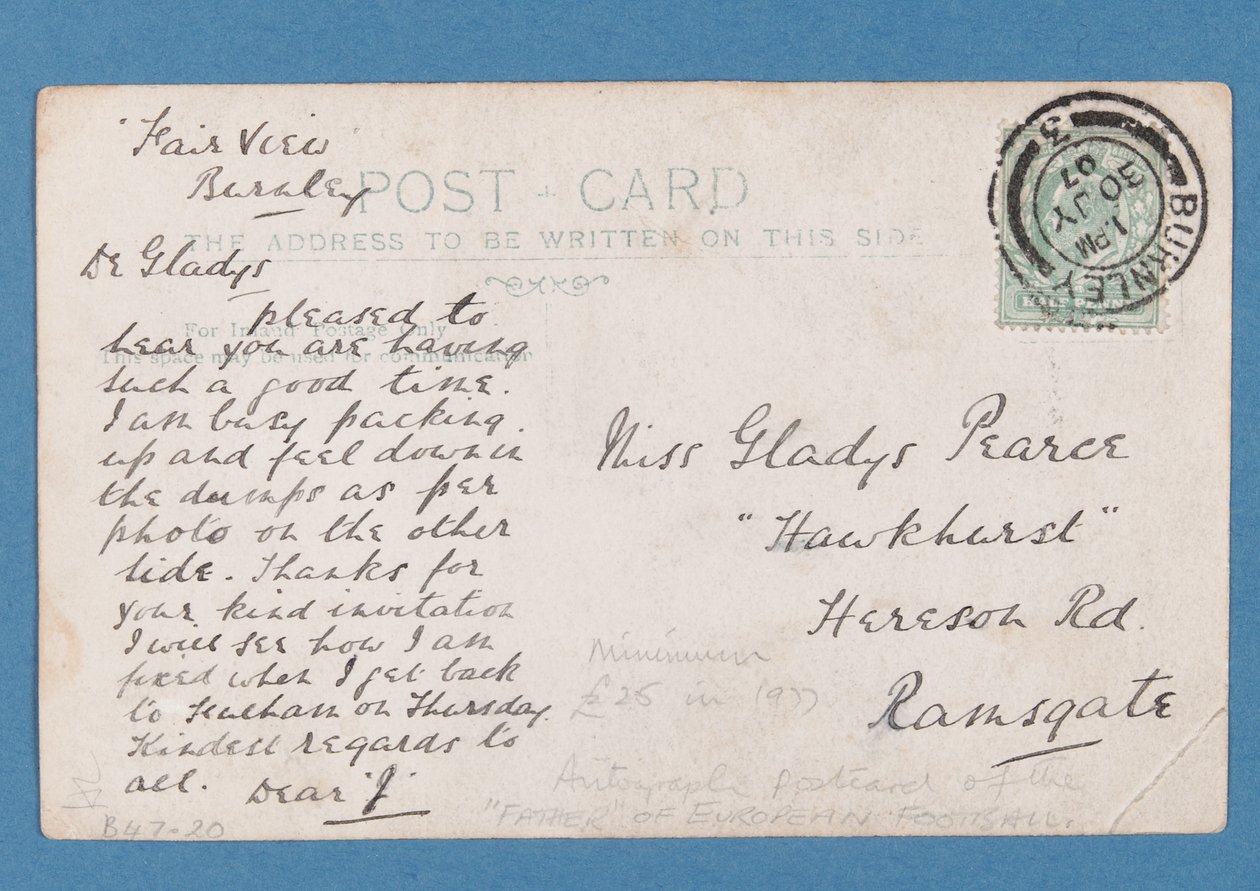 "Fair View"
Burnley
POST CARD
THE ADDRESS TO BE WRITTEN ON THIS SIDE
For Inland Postage Only
This space may be used for communication
De Gladys
pleased to
hear you are having
such a good time.
I am busy packing
up and feel down in
the dumps as per
photo on the other
side. Thanks for
your kind invitation
I will see how I am
fixed when I get back
to Fulham on Thursday.
Kindest regards to
all. Dear "J"
BURNLEY
1.PM
30 JY
07
3
HALFPENNY
Miss Gladys Pearce
"Hawkhurst"
Hereson Rd.
Ramsgate
Minimum
£25 in 1977
Autographe postcard of the
"FATHER" OF EUROPEAN FOOTBALL.
B47-20